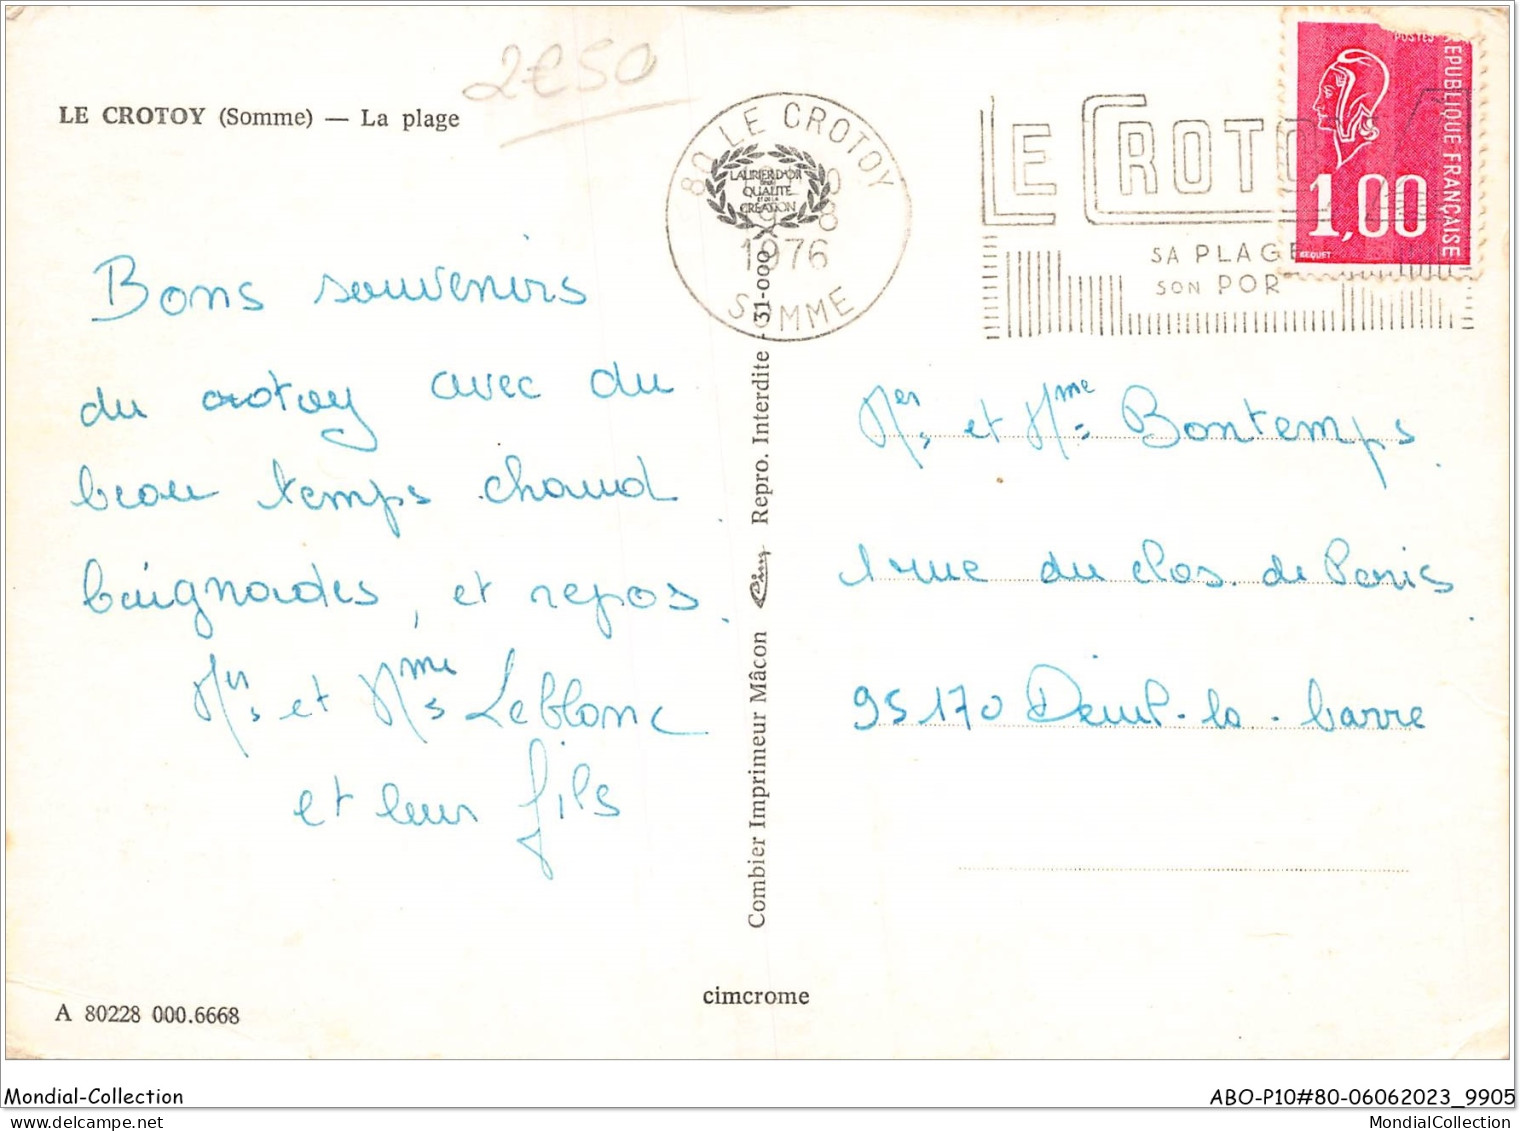 2€50
LE CROTOY (Somme) — La plage
80 LE CROTOY
LAURIER D'OR
QUALITÉ
ET DE LA
CRÉATION
1976
SOMME
LE CROTOY
SA PLAGE
SON POR
POSTES
REPUBLIQUE FRANÇAISE
1,00
BEQUET
Bons souvenirs
du crotoy avec du
beau temps chaud
baignades, et repos.
Mers et Mme Leblanc
et leur fils
Mers et Mme Bontemps.
1 rue du clos de Paris.
95170 Deuil-la-barre
Combier Imprimeur Mâcon Cim Repro. Interdite - 31-000
cimcrome
A 80228 000.6668
Mondial-Collection
ABO-P10#80-06062023_9905
© delcampe.net
MondialCollection